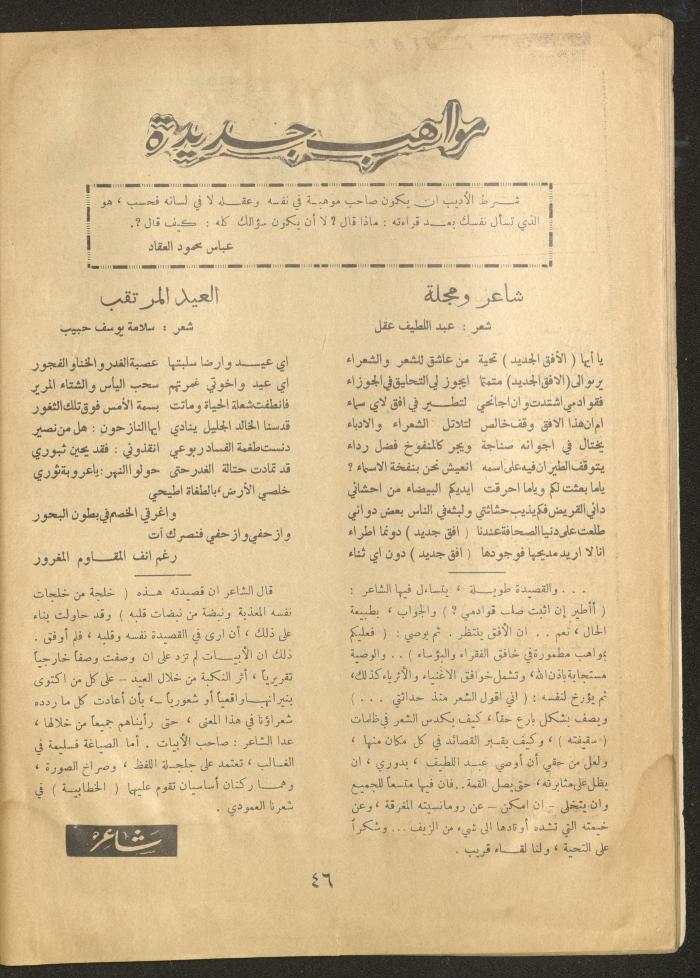 مواهب جديدة
شرط الأديب ان يكون صاحب موهبة في نفسه وعقله لا في لسانه فحسب ، هو
الذي تسأل نفسك بعد قراءته : ماذا قال ؟ لا أن يكون سؤالك كله : كيف قال ؟.
عباس محمود العقاد
شاعر ومجلة
شعر : عبد اللطيف عقل
يا أيها ( الأفق الجديد ) تحية من عاشق للشعر والشعراء
يرنو الى (الافق الجديد) متمتما ايجوز لي التحليق في الجوزاء
فقوادمي اشتدت وان اجانحي لتطير في افق لاي سماء
ام ان هذا الافق وقف خالص لتلاتل الشعراء والادباء
يختال في اجوائه صناجة ويجر كالمنفوخ فضل رداء
يتوقف الطيران فيه على اسمه انعيش نحن بنفخة الاسماء ؟
ياما بعثت لكم وياما احرقت ايديكم البيضاء من احشائي
داني القريض فكم يذيب حشاشتي ولبثه في الناس بعض دوائي
طلعت على دنيا الصحافة عندنا ( افق جديد ) دونما اطراء
انا لا اريد مديحها فوجودها ( افق جديد ) دون اي ثناء
. . . والقصيدة طويلة ، يتساءل فيها الشاعر :
( أأطير إن اثبت صلب قوادمي ؟ ) والجواب ، بطبيعة
الحال ، نعم . . ان الأفق ينتظر . ثم يوصي : ( فعليكم
بمواهب مطمورة في خافق الفقراء والبؤساء ) . . والوصية
مستجابة باذن الله ، وتشمل خوافق الاغنياء والأثرياء كذلك ،
ثم يؤرخ لنفسه : ( اني اقول الشعر منذ حداثتي . . . )
ويصف بشكل بارع حقاً ، كيف يكدس الشعر في ظلمات
( سقيفته ) ، وكيف يقبر القصائد في كل مكان منها ،
ولعل من حقي أن أوصي عبد اللطيف ، بدوري ، ان
يظل على مثابرته ، حتى يصل القمة . . فان فيها متسعاً للجميع
وان يتخلى – ان امكن – عن رومانسيته المغرقة ، وعن
خيمته التي تشده أوتادها الى شيء من الزيف . . . وشكراً
على التحية ، ولنا لقاء قريب .
العيد المرتقب
شعر : سلامة يوسف حبيب
اي عيد وارضنا سلبتها عصبة الغدر والخنا والفجور
اي عيد واخوتي غمرتهم سحب اليأس والشتاء المرير
فانطفت شعلة الحياة وماتت بسمة الأمس فوق تلك الثغور
قدسنا الخالد الجليل ينادي ايها النازحون : هل من نصير
دنست طغمة الفساد ربوعي انقذوني : فقد يحين ثبوري
قد تمادت حثالة الغدر حتى حولوا النهر : يا عروبة ثوري
خلصي الأرض ، بالطغاة اطيحي
واغرقي الخصم في بطون البحور
وازحفي وازحفي فنصرك آت
رغم انف المقاوم المغرور
قال الشاعر ان قصيدته هذه ( خلجة من خلجات
نفسه المعذبة ونبضة من نبضات قلبه ) وقد حاولت بناء
على ذلك ، أن ارى في القصيدة نفسه وقلبه ، فلم أوفق .
ذلك ان الأبيات لم تزد على ان وصفت وصفاً خارجياً
تقريرياً ، أثر النكبة من خلال العيد – على كل من اكتوى
بنيرانها واقعياً أو شعورياً – ، بأن أعادت كل ما ردده
شعراؤنا في هذا المعنى ، حتى رأيناهم جميعاً من خلالها ،
عدا الشاعر : صاحب الأبيات . أما الصياغة فسليمة في
الغالب ، تعتمد على جلجلة اللفظ ، وصراخ الصورة ،
وهما ركنان أساسيان تقوم عليها ( الخطابية ) في
شعرنا العمودي .
شاعر
٤٦